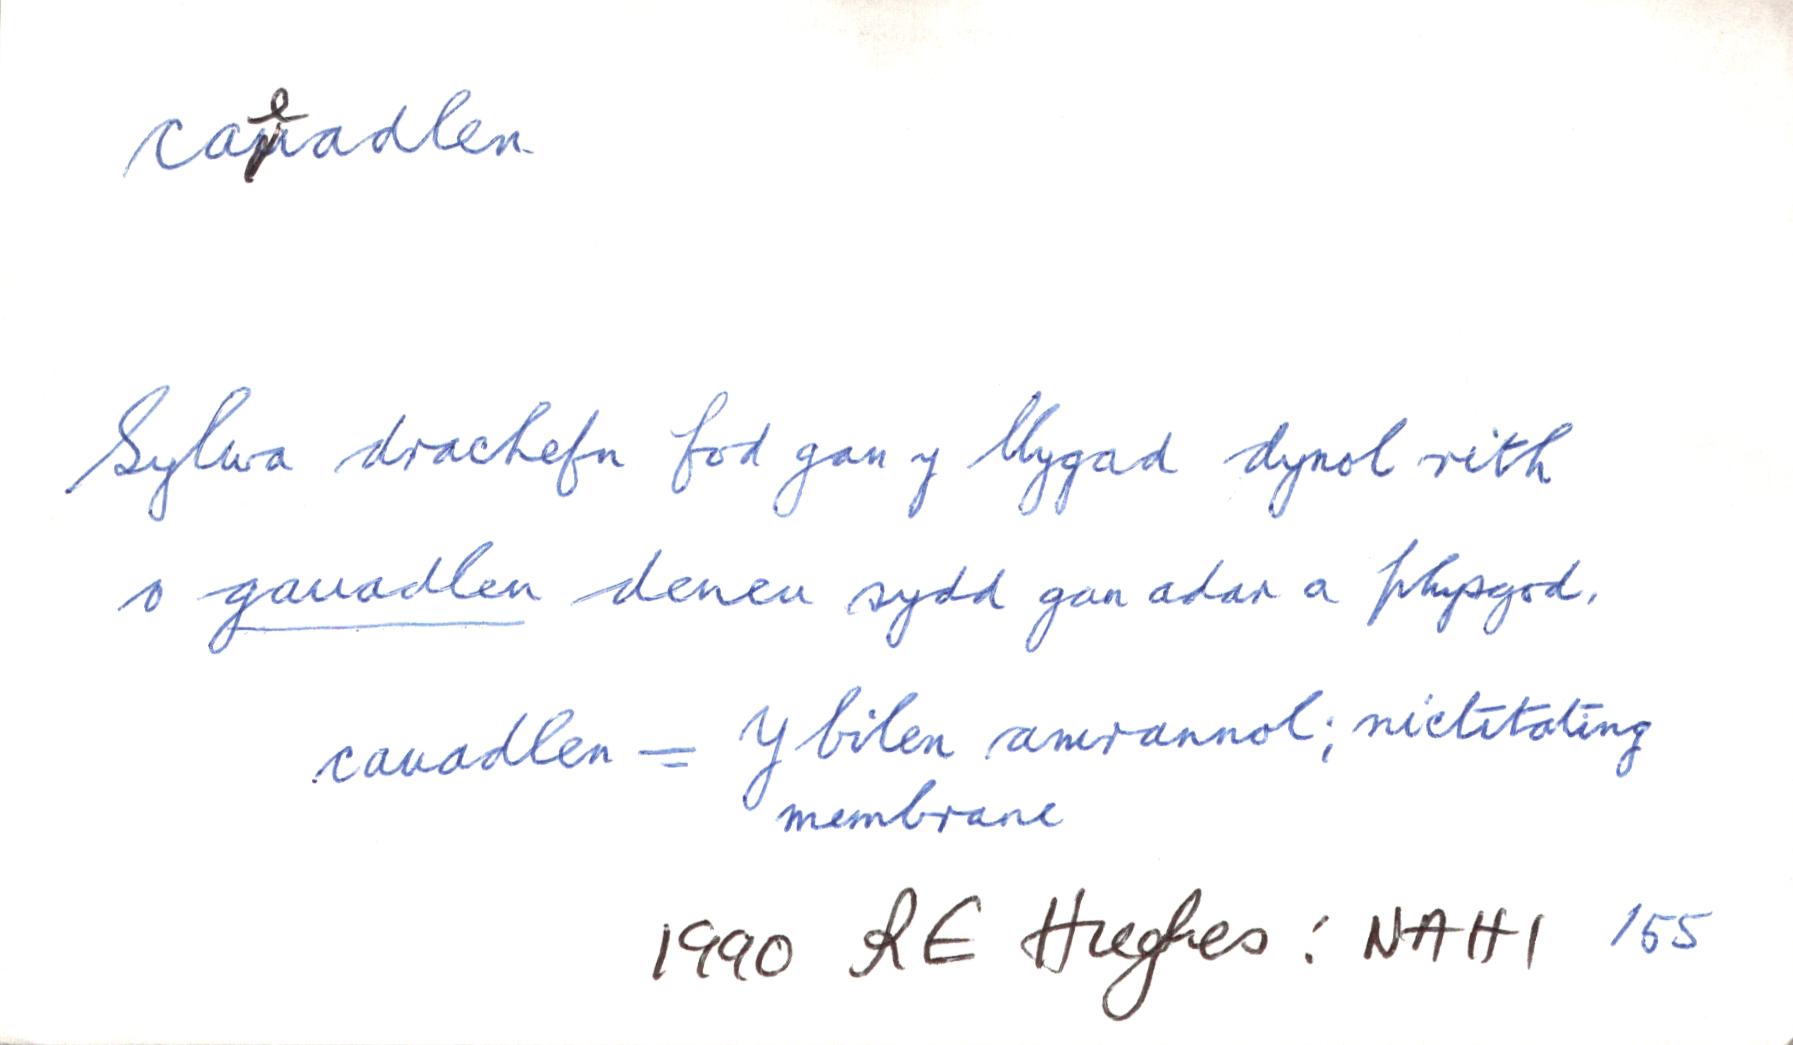 caeadlen
Sylwa drachefn fod gan y llygad dynol rith
o gauadlen deneu sydd gan adar a physgod.
cauadlen = Y bilen amrannol; nictitating
membrane
1990 RE Hughes: NAHI 155